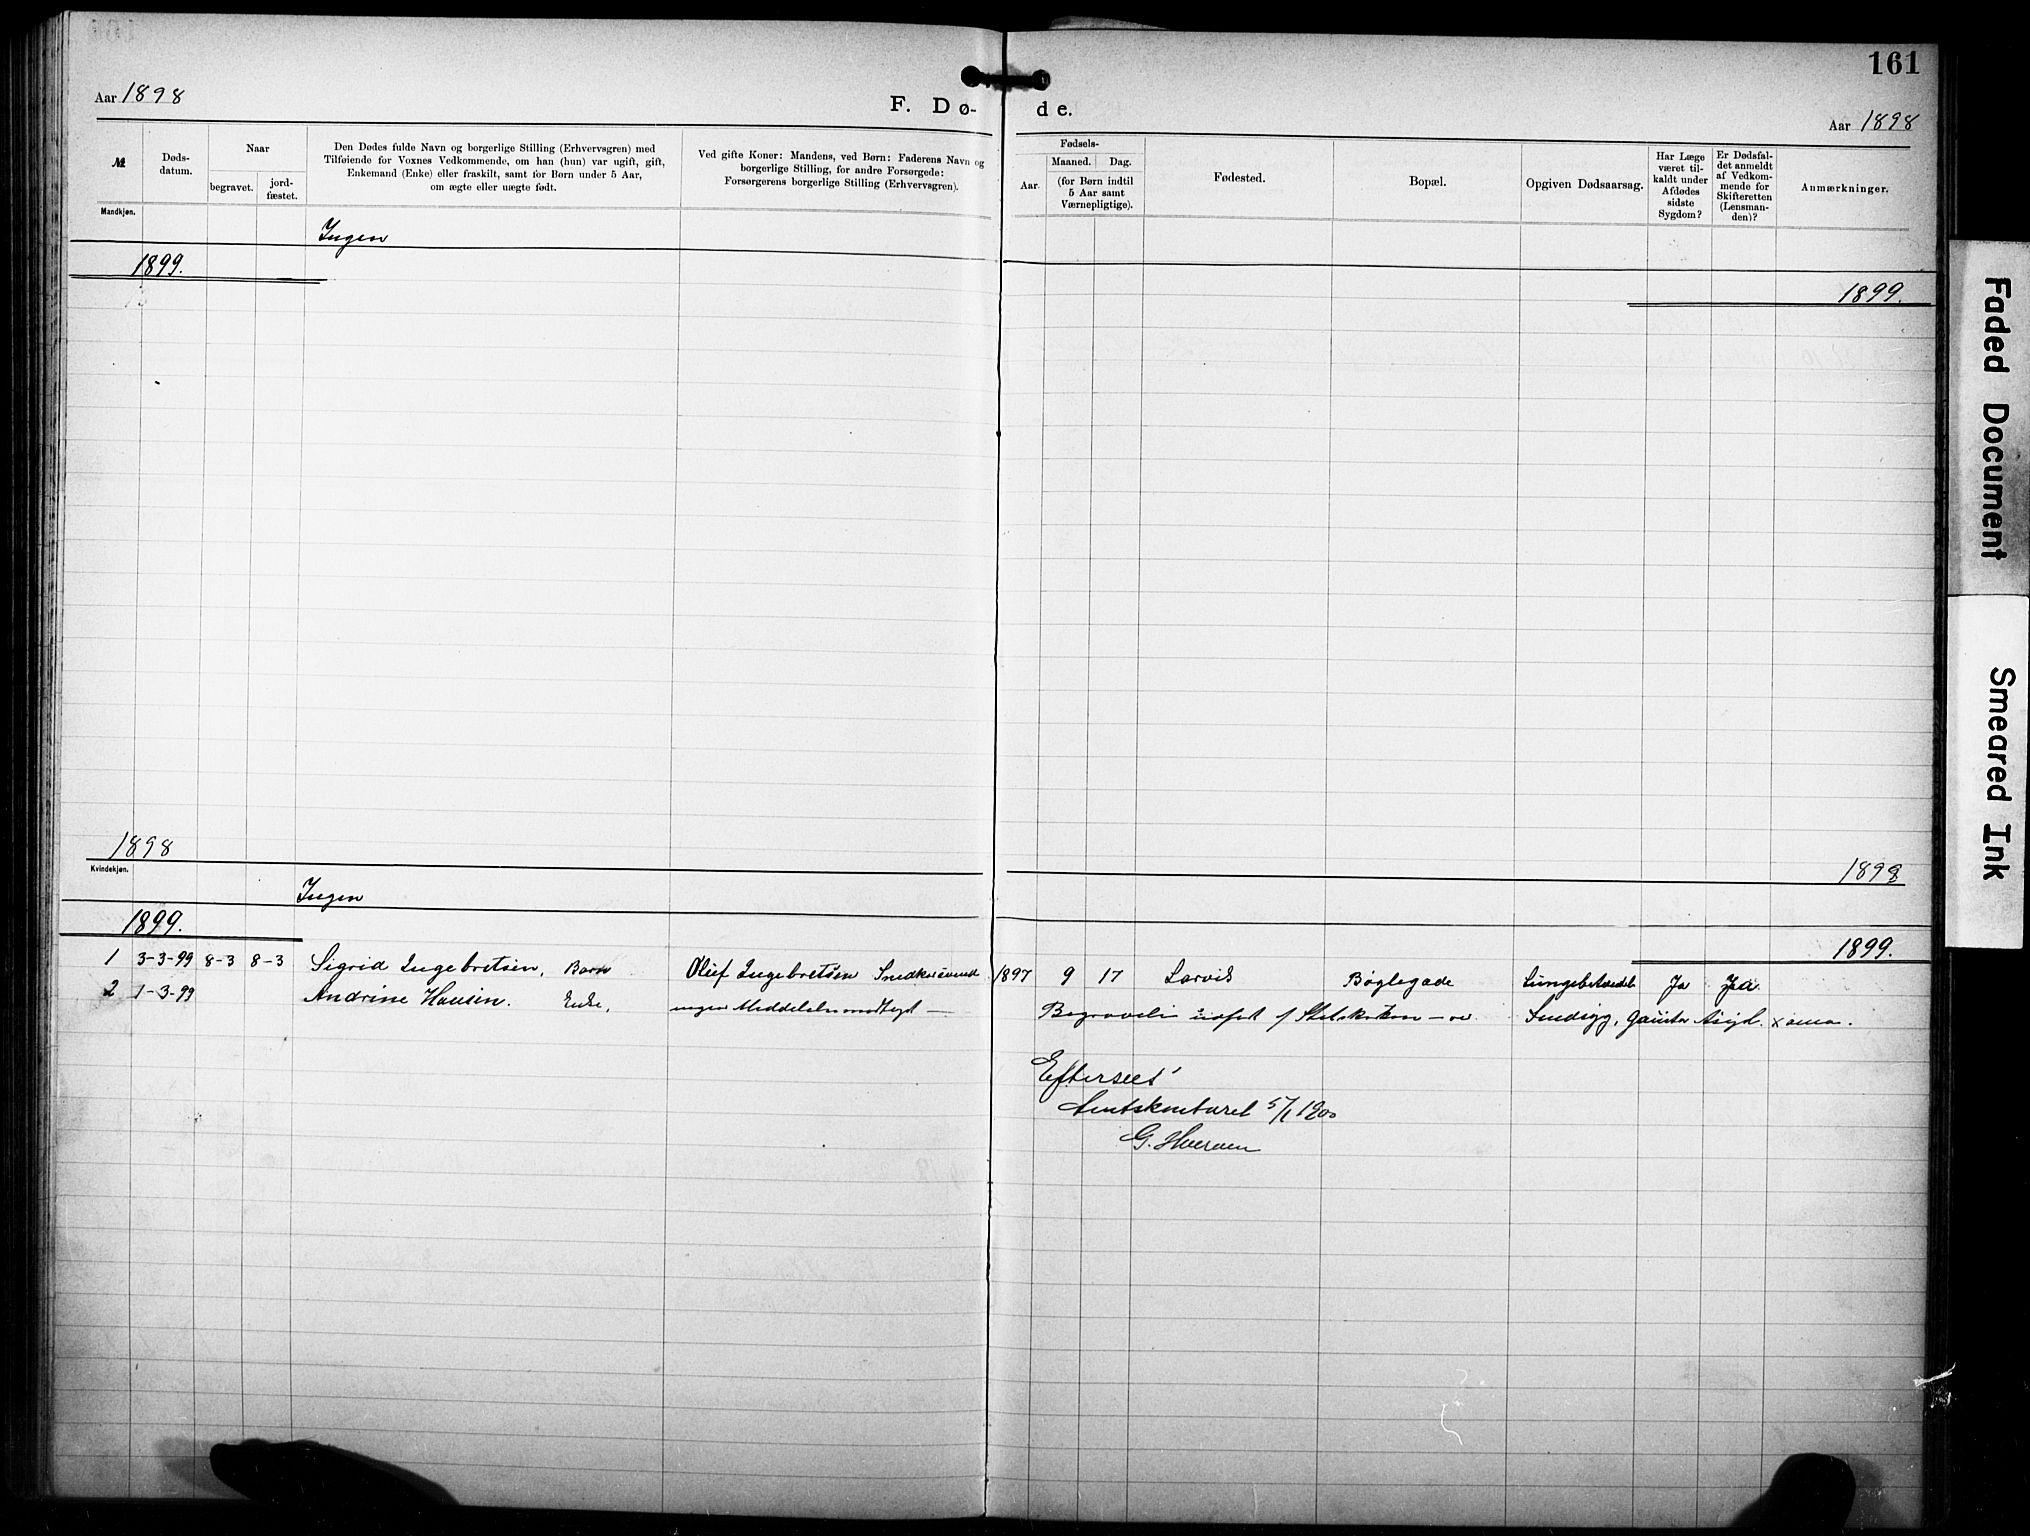 161
Aar 1898
F. Dø-
de.
Aar 1898
№
Døds-
datum.
Naar
begravet.
jord-
fæstet.
Den Dødes fulde Navn og borgerlige Stilling (Erhvervsgren) med
Tilføiende for Voxnes Vedkommende, om han (hun) var ugift, gift,
Enkemand (Enke) eller fraskilt, samt for Børn under 5 Aar,
om ægte eller uægte født.
Ved gifte Koner: Mandens, ved Børn: Faderens Navn og
borgerlige Stilling, for andre Forsørgede:
Forsørgerens borgerlige Stilling (Erhvervsgren).
Fødsels-
Aar.
Maaned.
Dag.
(for Børn indtil
5 Aar samt
Værnepligtige).
Fødested.
Bopæl.
Opgiven Dødsaarsag.
Har Læge
været til-
kaldt under
Afdødes
sidste
Sygdom?
Er Dødsfal-
det anmeldt
af Vedkom-
mende for
Skifteretten
(Lensman-
den)?
Anmærkninger.
Mandkjøn.
Ingen
1899.
1899.
1898
Kvindekjøn.
1898
Ingen
1899.
1899.
1 3-3-99 8-3 8-3 Sigrid Ingebretsen, Barn Oluf Ingebretsen 1897 9 17 Larvik Bøglegade Ja Ja
2 1-3-99 Andrine Hansen. Enke,
Efterseet
Amtskontoret 5/1 1900
Faded Document
Smeared Ink